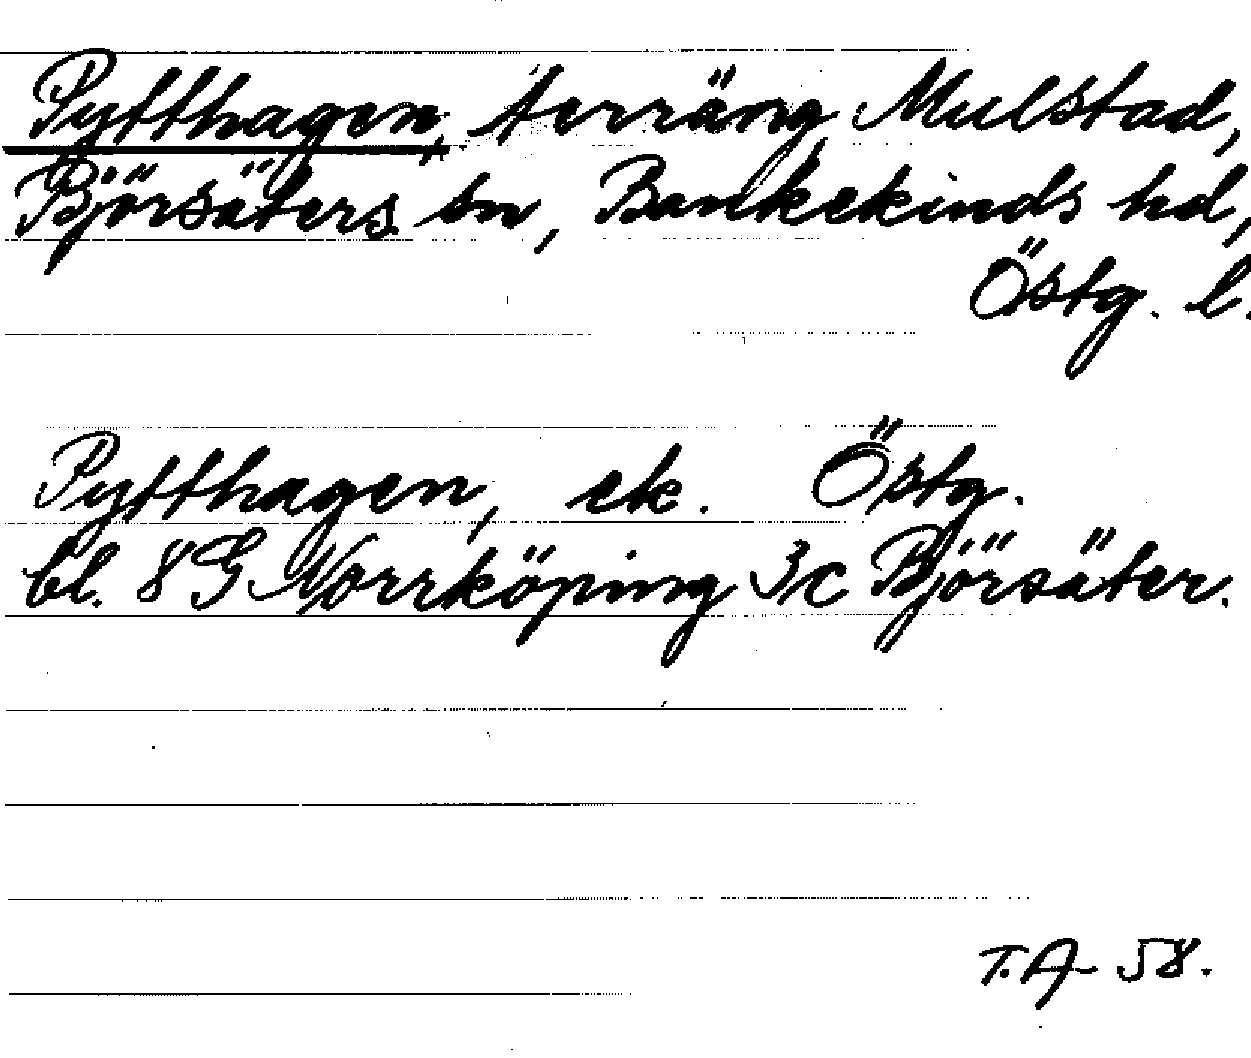 Pytthagen, terräng Mulstad,
Björsäters sn, Bankekinds hd,
Östg. l.
Pytthagen, ek. Östg.
bl. 8G Norrköping 3c Björsäter.
T.A 58.